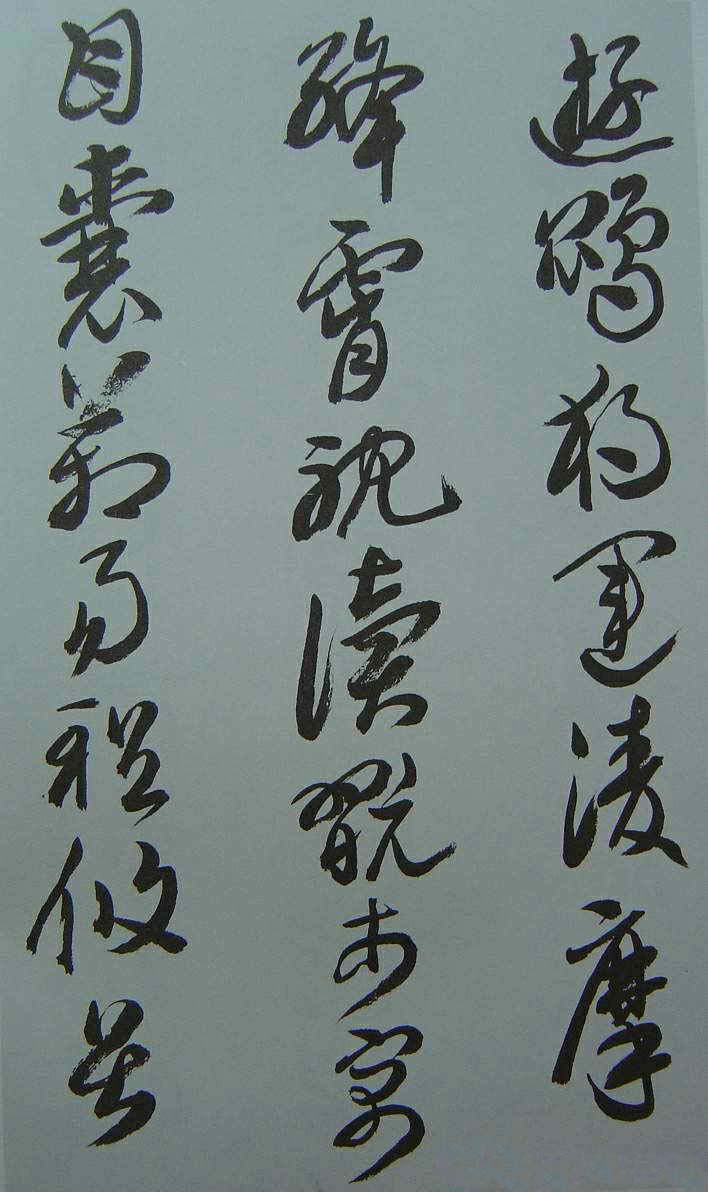 遊鵾独運凌摩
絳霄耽讀翫市寓
目囊箱易輶攸畏